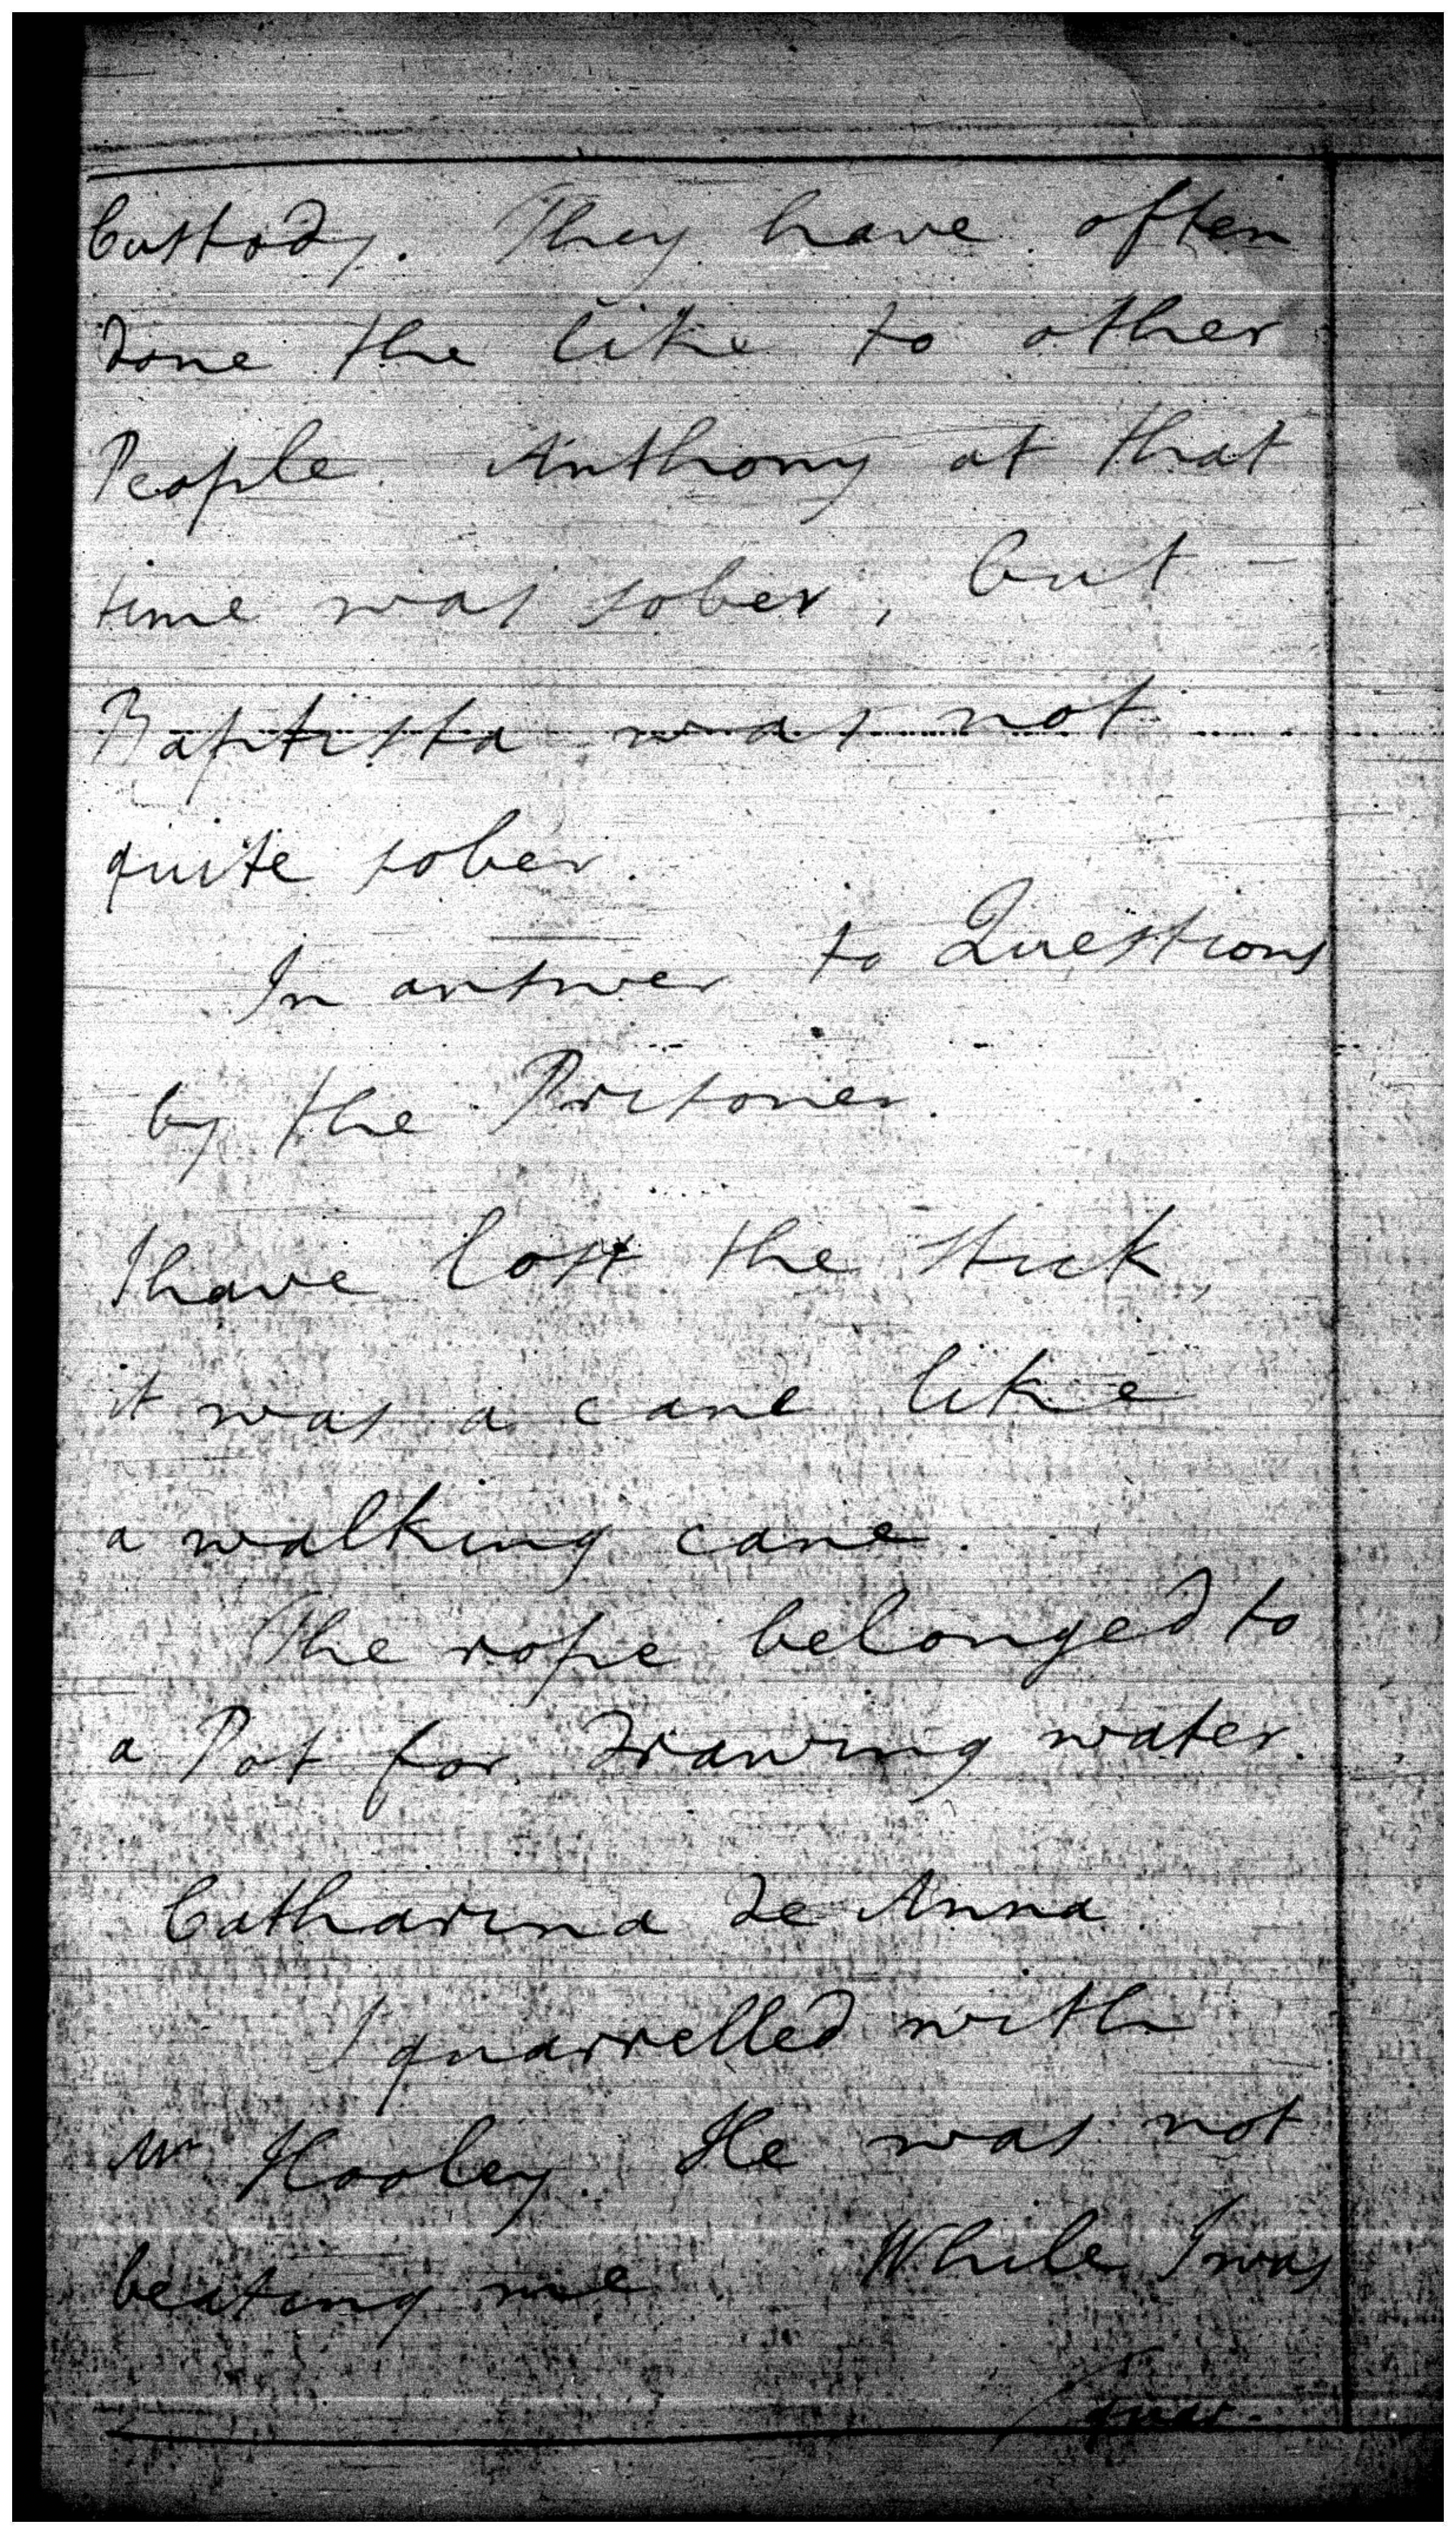 Custody. They have often
done the like to other
People. Anthony at that
time was sober, but -
Baptista was not
quite sober.
In answer to Questions
by the Prisoner.
I have lost the stick,
it was a cane like
a walking cane.
The rope belonged to
a Pot for drawing water.
Catharina de Anna.
I quarrelled with
Mr Hooley. He was not
beating me. While I was
quar-